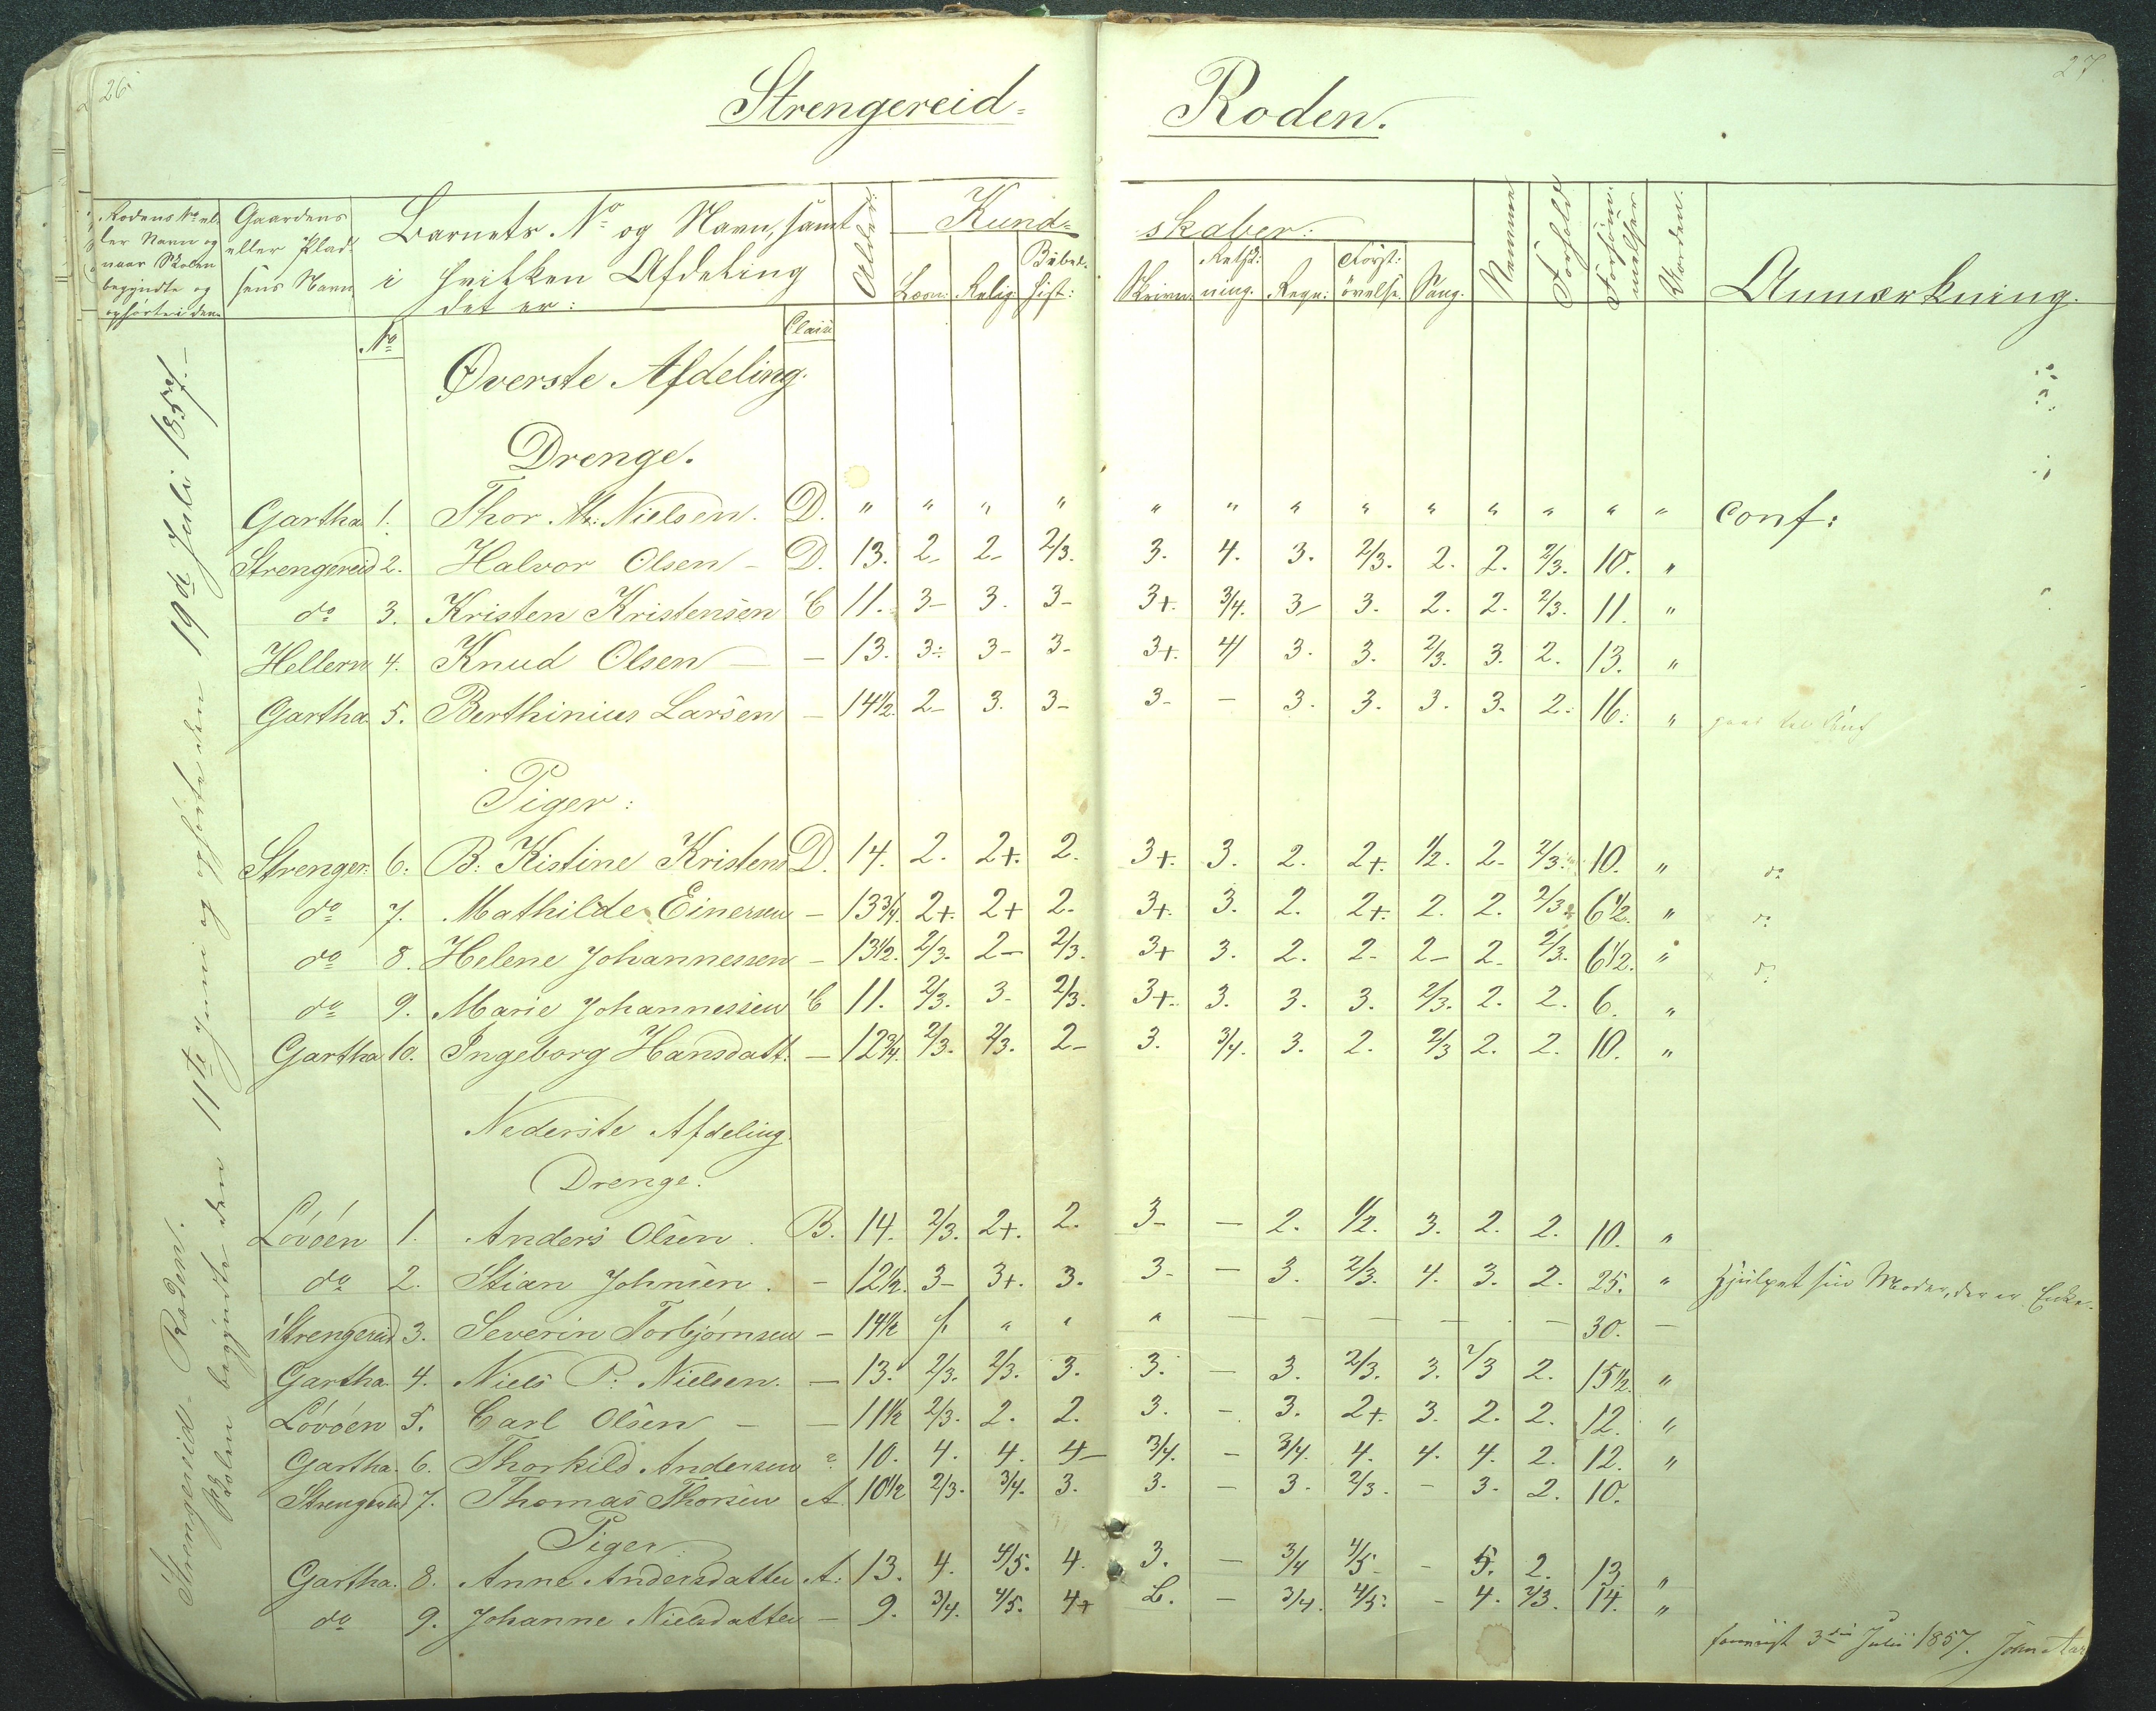 26.
27
Strengereid- Roden.
Rodens No el-
ler Navn og
naar Skolen
begyndte og
ophørte i den
Gaardens
eller Plad-
sens Navn
Barnets No og Navn, samt
i hvilken Afdeling
det er:
Alder.
Kund-
skaber:
Læsn: Relig: Bibel- hist:
Skrivn: Retskr: ning. Regn: Forst: øvelse. Sang.
Nemme
Forhold
Forsøm- melser
Værdien.
Anmærkning.
No
Class
Strengereid-Roden.
Skolen begyndte den 11te Juni og ophørte den 19de Juli 1857-
Øverste Afdeling.
Drenge.
Gartha 1. Thor N: Nielsen. D. " " " " " " " " " " " " " conf:
Strengereid 2. Halvor Olsen - D. 13. 2- 2- 2/3. 3. 4. 3. 2/3. 2. 2. 2/3. 10. "
do 3. Kristen Kristensen C 11. 3- 3. 3- 3+. 3/4. 3- 3. 2. 2. 2/3. 11. "
Hellern 4. Knud Olsen - 13. 3- 3- 3- 3+. 4 3. 3. 2/3. 3. 2. 13. "
Gartha 5. Berthinius Larsen - 14 1/2. 2- 3. 3- 3- - 3. 3. 3. 3. 2. 16. " gaar til Conf
Piger:
Strenger: 6. B: Kistine Kristens D. 14. 2. 2+. 2. 3+. 3. 2. 2+. 1/2. 2- 2/3. 10. " do
do 7. Mathilde Einersen - 13 3/4. 2+. 2+ 2- 3+. 3. 2. 2+. 2. 2. 2/3. 6 1/2. " do
do 8. Helene Johannessen - 13 1/2. 2/3. 2- 2/3. 3+ 3. 2. 2. 2- 2. 2/3. 6 1/2. " do
do 9. Marie Johannessen C 11. 2/3. 3- 2/3. 3+. 3. 3. 3. 2/3. 2. 2. 6. "
Gartha 10. Ingeborg Hansdatt. - 12 3/4. 2/3. 2/3. 2- 3. 3/4. 3. 2. 2/3 2. 2. 10. "
Nederste Afdeling
Drenge.
Løvøen 1. Anders Olsen. B. 14. 2/3. 2+. 2. 3- - 2. 1/2. 3. 2. 2. 10. "
do 2. Stian Johnsen. - 12 1/2. 3- 3+. 3. 3- - 3. 2/3. 4. 3. 2. 25. " hjulpet sin Moder, der er Enke.
Strengereid 3. Severin Torbjørnsen - 14 1/2 " " " - - - - - - 30. -
Gartha 4. Niels P: Nielsen. - 13. 2/3. 2/3. 3. 3. - 3. 2/3. 3. 2/3 2. 15 1/2. "
Løvøen 5. Carl Olsen - - 11 1/2 2/3. 2. 2. 3. - 3. 2+. 3. 2. 2. 12. "
Gartha. 6. Thorkild Andersen - 10. 4. 4. 4- 3/4. - 3/4. 4. 4. 4. 2. 12. "
Strengereid 7. Thomas Thorsen A. 10 1/2 2/3. 3/4. 3. 3. - 3. 2/3. - 3. 2. 10.
Piger
Gartha. 8. Anne Andersdatter A. 13. 4. 4/5. 4. 3. - 3/4 4/5 - 5. 2. 13 "
do 9. Johanne Nielsdatter - 9. 3/4. 4/5. 4+ B. - 3/4. 4/5. - 4. 2/3. 14. "
3die Julii 1857. John Aas